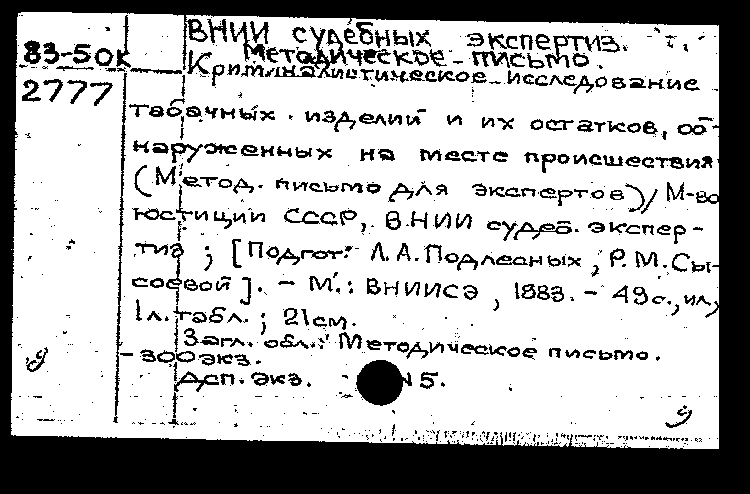 ВНИИ судебных экспертиз.
83-50к Методическое письмо.
Криминалистическое исследование
2777
табачных изделий и их остатков, об-
наруженных на месте происшествия
(Метод. письмо для экспертов) / М-во
юстиции СССР, ВНИИ судеб. экспер-
тиз ; [Подгот. Л. А. Подлесных, Р. М. Сы-
соевой]. – М. : ВНИИСЭ, 1983. – 49 с., ил.,
1 л. табл. ; 21 см.
Загл. обл.: Методическое письмо.
– 300 экз.
Дсп. экз. 5.